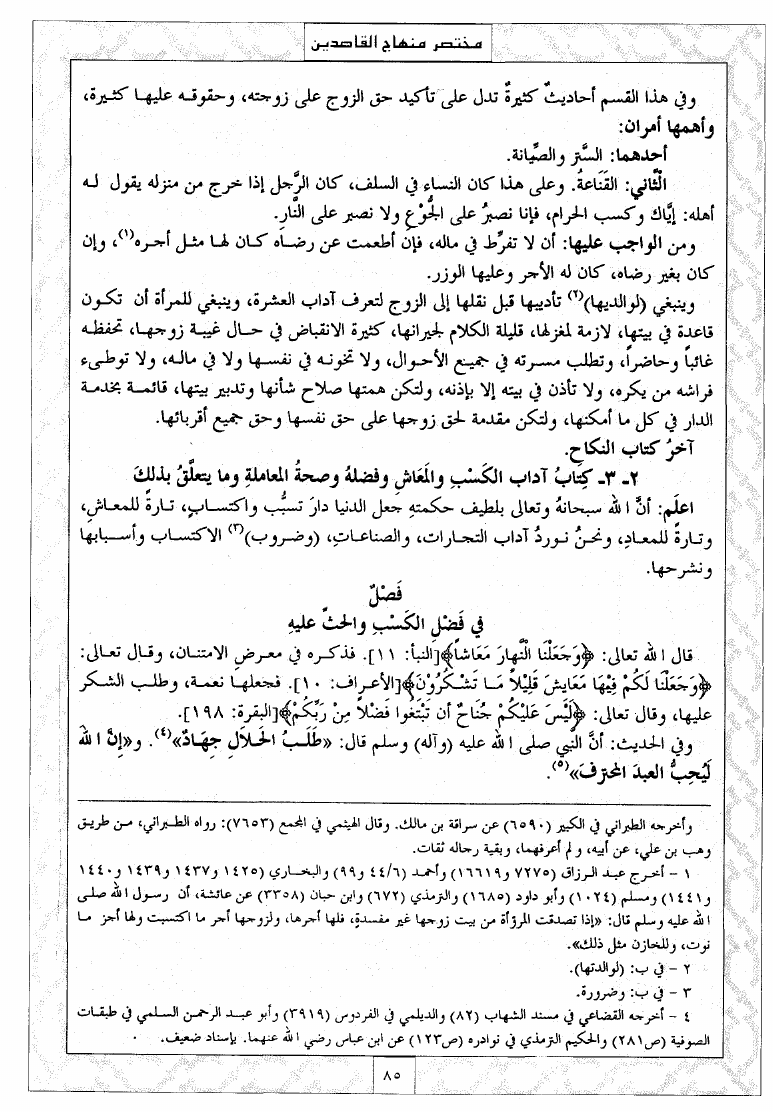 مختصر منهاج القاصدين
وفي هذا القسم أحاديثٌ كثيرةٌ تدل على تأكيد حق الزوج على زوجته، وحقوقه عليها كثيرة،
وأهمها أمران:
أحدهما: السَّتر والصِّيانة.
الثَّاني: القَنَاعةُ. وعلى هذا كان النساء في السلف، كان الرَّجل إذا خرج من منزله يقول له
أهله: إيَّاك وكسب الحرام، فإنا نصبرُ على الجُوْعِ ولا نصبر على النَّارِ.
ومن الواجب عليها: أن لا تفرِّط في ماله، فإن أطعمت عن رضاه كان لها مثل أجره(١)، وإن
كان بغير رضاه، كان له الأجر وعليها الوزر.
وينبغي (لوالديها)(٢) تأديبها قبل نقلها إلى الزوج لتعرف آداب العشرة، وينبغي للمرأة أن تكون
قاعدة في بيتها، لازمة لمغزلها، قليلة الكلام لجيرانها، كثيرة الانقباض في حال غيبة زوجها، تحفظه
غائباً وحاضراً، وتطلب مسرته في جميع الأحوال، ولا تخونه في نفسها ولا في ماله، ولا توطىء
فراشه من يكره، ولا تأذن في بيته إلا بإذنه، ولتكن همتها صلاح شأنها وتدبير بيتها، قائمة بخدمة
الدار في كل ما أمكنها، ولتكن مقدمة لحق زوجها على حق نفسها وحق جميع أقربائها.
آخرُ كتاب النكاحِ.
٢ـ ٣ـ كِتابُ آداب الكَسْبِ والمَعَاشِ وفضلهُ وصحةُ المعاملةِ وما يتعلَّقُ بذلكَ
اعلَم: أنَّ الله سبحانهُ وتعالى بلطيف حكمتهِ جعل الدنيا دارَ تسبُّب واكتسابٍ، تارةً للمعاشِ،
وتارةً للمعادِ، ونحنُ نوردُ آداب التجارات، والصناعاتِ، (وضروب)(٣) الاكتساب وأسبابها
ونشرحها.
فَصْلٌ
في فَضْلِ الكَسْبِ والحثِّ عليهِ
قال الله تعالى: ﴿وَجَعَلْنَا النَّهارَ مَعَاشاً﴾[النبأ: ١١]. فذكره في معرضِ الامتنان، وقال تعالى:
﴿وَجَعَلْنَا لَكُمْ فِيْهَا مَعَايشَ قَلِيْلاً مَا تَشْكُرُوْنَ﴾[الأعراف: ١٠]. فجعلها نعمة، وطلب الشكر
عليها، وقال تعالى: ﴿لَيْسَ عَلَيْكُمْ جُنَاحٌ أن تَبْتَغُوا فَضْلاً مِنْ رَبِّكُمْ﴾[البقرة: ١٩٨].
وفي الحديث: أنَّ النبي صلى الله عليه (وآله) وسلم قال: «طَلَبُ الحَلَالِ جِهَادٌ»(٤). و«إنَّ الله
لَيُحِبُّ العبدَ المحترفَ»(٥).
وأخرجه الطبراني في الكبير (٦٥٩٠) عن سراقة بن مالك. وقال الهيثمي في المجمع (٧٦٥٣): رواه الطبراني، من طريق
وهب بن علي، عن أبيه، ولم أعرفهما، وبقية رجاله ثقات.
١ - أخرج عبد الرزاق (٧٢٧٥ و١٦٦١٩) وأحمد (٤٤/٦ و٩٩) والبخاري (١٤٢٥ و١٤٣٧ و١٤٣٩ و١٤٤٠
و١٤٤١) ومسلم (١٠٢٤) وأبو داود (١٦٨٥) والترمذي (٦٧٢) وابن حبان (٣٣٥٨) عن عائشة، أن رسول الله صلى
الله عليه وسلم قال: «إذا تصدقت المرؤأة من بيت زوجها غير مفسدةٍ، فلها أجرها، ولزوجها أجر ما اكتسبت ولها أجز ما
نوت، وللخازن مثل ذلك».
٢ - في ب: (لوالدتها).
٣ - في ب: وضرورة.
٤ - أخرجه القضاعي في مسند الشهاب (٨٢) والديلمي في الفردوس (٣٩١٩) وأبو عبد الرحمن السلمي في طبقات
الصوفية (ص٢٨١) والحكيم الترمذي في نوادره (ص١٢٣) عن ابن عباس رضي الله عنهما. بإسناد ضعيف.
٨٥